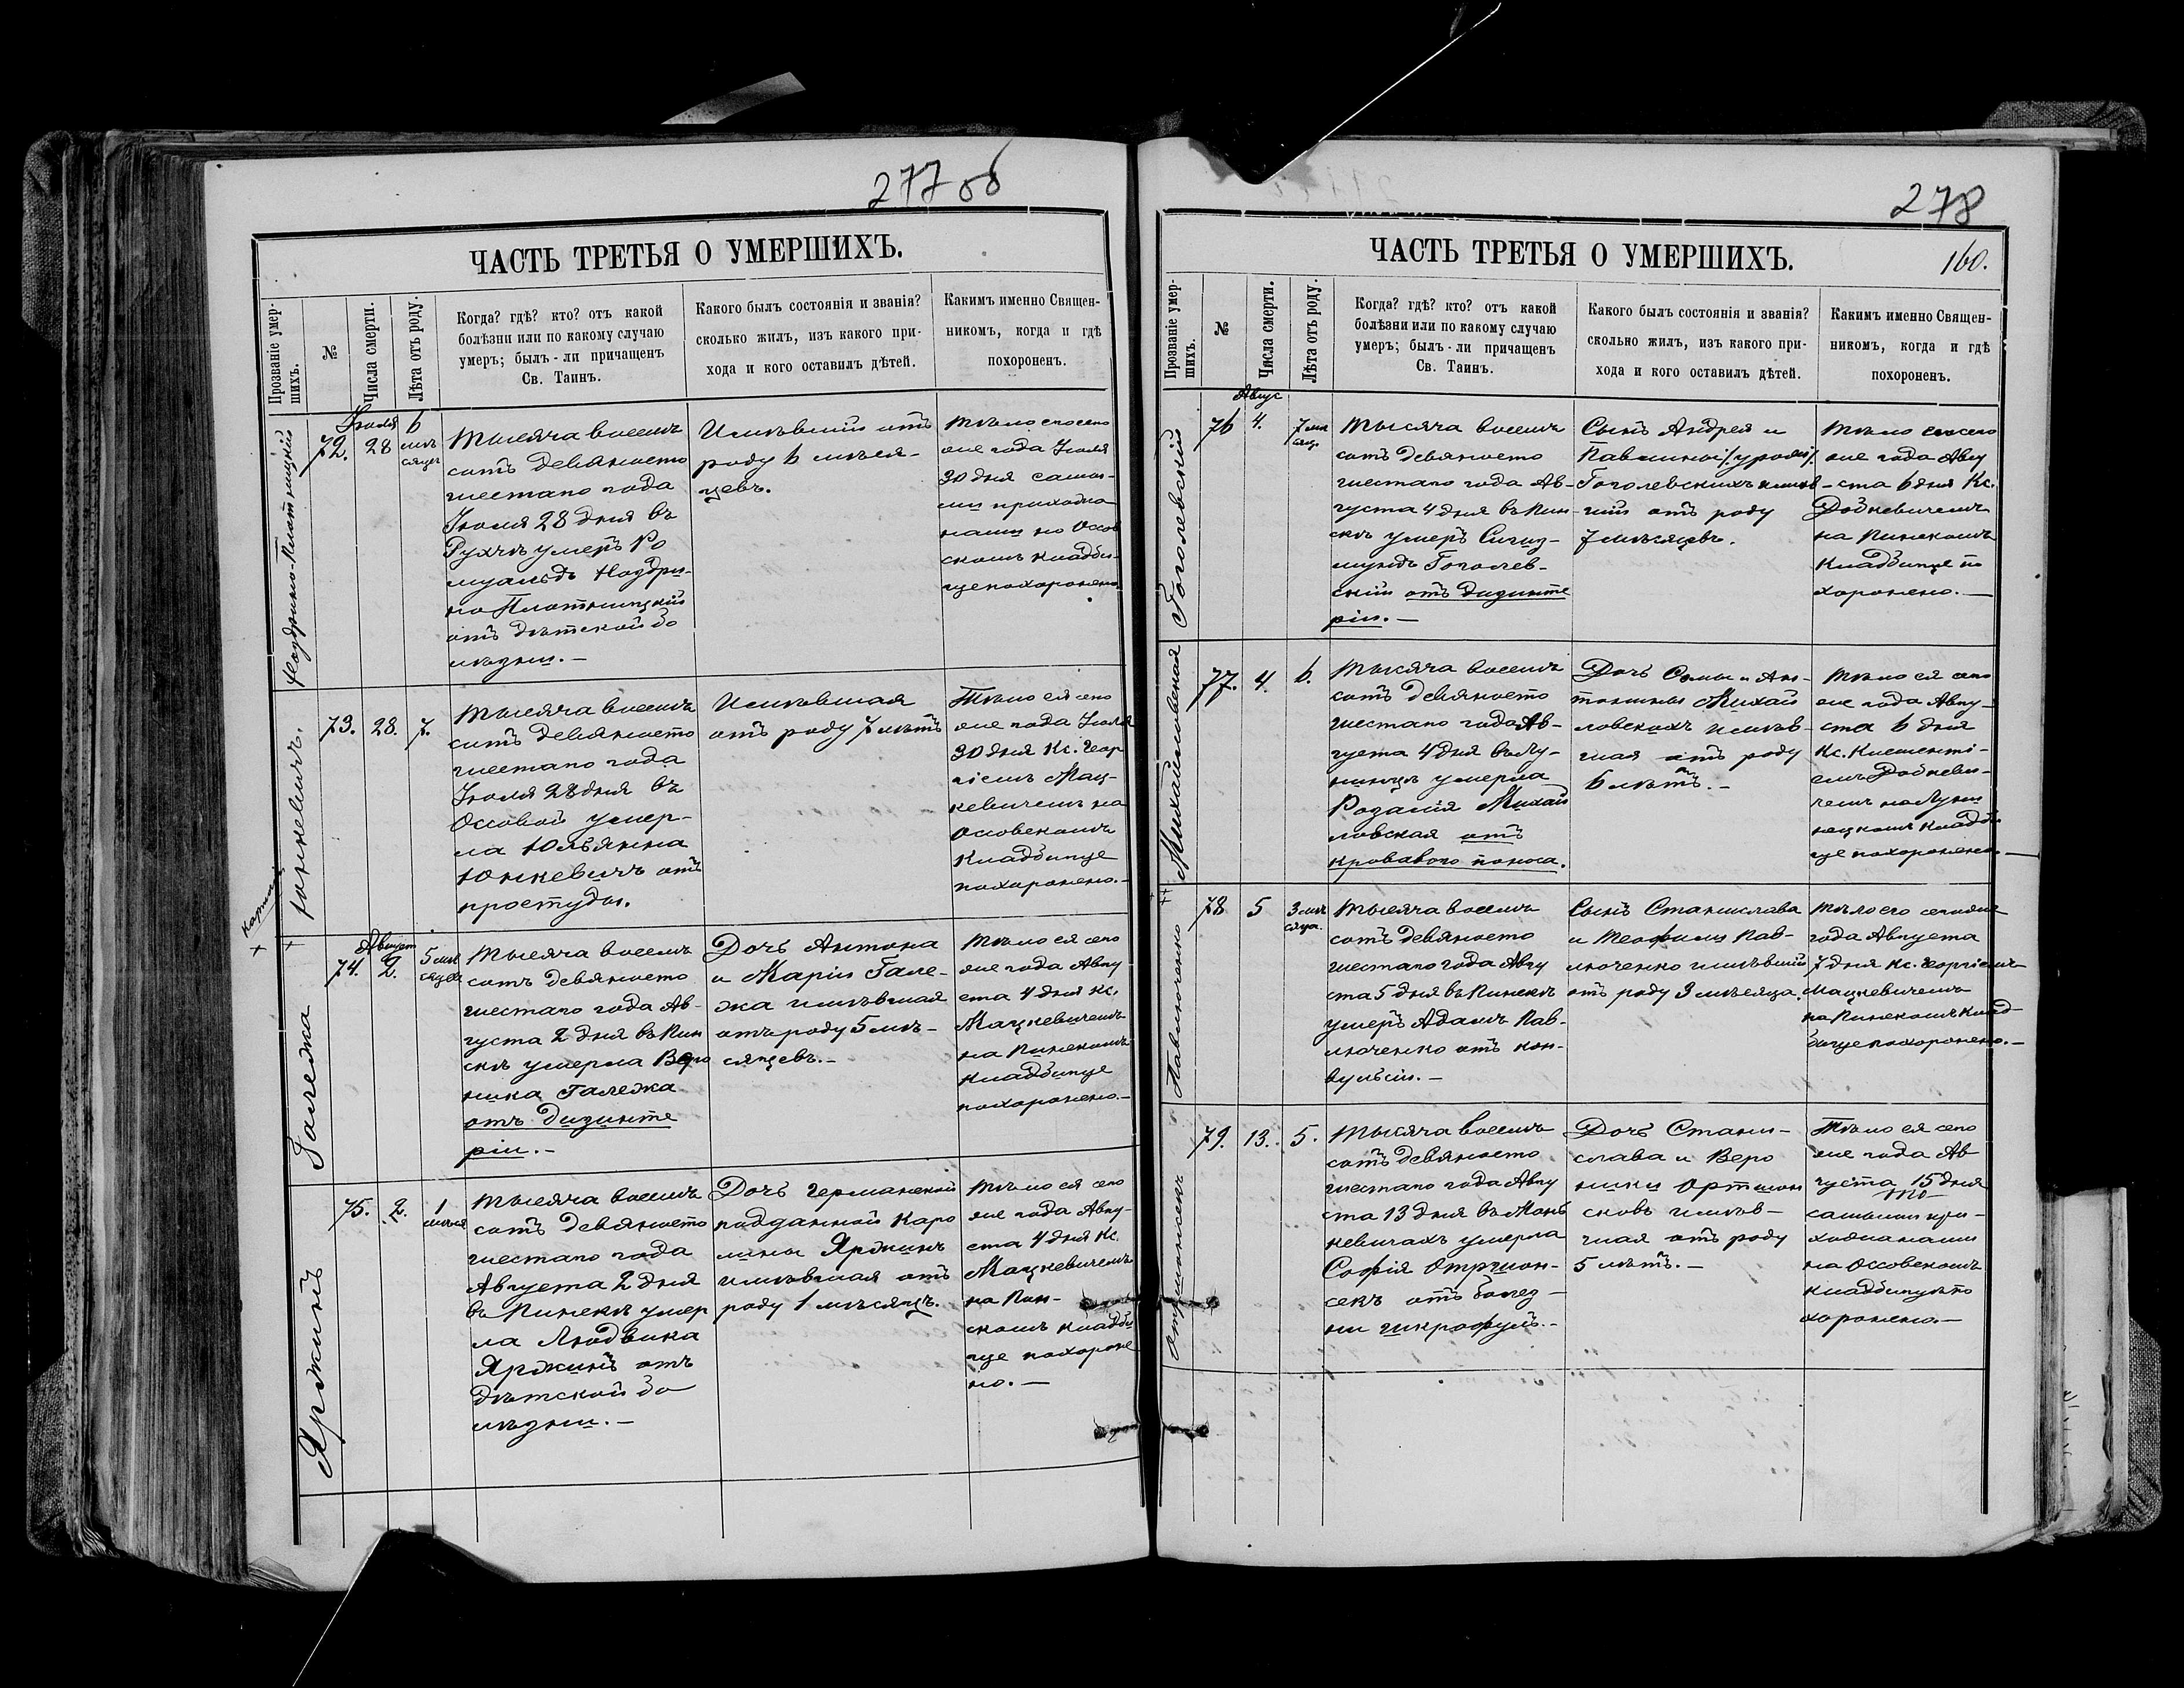 277 об
ЧАСТЬ ТРЕТЬЯ О УМЕРШИХЪ.
Прозваніе умер-
шихъ.
№
Числа смерти.
Лѣта отъ роду.
Когда? гдѣ? кто? отъ какой
болѣзни или по какому случаю
умеръ; былъ-ли причащенъ
Св. Таинъ.
Какого былъ состоянія и званія?
сколько жилъ, изъ какого при-
хода и кого оставилъ дѣтей.
Какимъ именно Священ-
никомъ, когда и гдѣ
похороненъ.
72.
Іюля
28
6
мѣ
сяцъ
Тысяча восемъ
сотъ девяносто
шестаго года
Іюля 28 дня въ
умеръ Ро
муальдъ Ноздри-
но Плотницкій
отъ дѣтской бо
лѣзни.—
Имѣвшій отъ
роду 6 мѣся-
цевъ.
Тѣло его сего
же года Іюля
30 дня самы-
ми прихожа-
нами на Оссов
скомъ кладби-
ще похоронено
Юнкевичъ.
73.
28.
7.
Тысяча восемъ
сотъ девяносто
шестаго года
Іюля 28 дня въ
Оссовой умер-
ла Юльянна
Юнкевичъ отъ
простуды.
Имѣвшая
отъ роду 7 лѣтъ
Тѣло ея сего
же года Іюля
30 дня Кс. Геор
гіемъ Мац-
кевичемъ на
Оссовскомъ
кладбище
похоронено.—
Галежа
74.
Август
2.
5 мѣ
сяцев
Тысяча восемъ
сотъ девяносто
шестаго года Ав-
густа 2 дня въ Пин
скѣ умерла Веро
ника Галежа
отъ дизинте
ріи.—
Дочь Антона
и Маріи Гале-
жа имѣвшая
отъ роду 5 мѣ-
сяцевъ.—
Тѣло ея сего
же года Авгу
ста 4 дня Кс.
Мацкевичемъ
на Пинскомъ
кладбище
похоронено.—
Яржинъ
75.
2.
1
мѣся
Тысяча восемъ
сотъ девяносто
шестаго года
Августа 2 дня
въ Пинскѣ умер
ла Людвика
Яржинъ отъ
дѣтской бо
лѣзни.—
Дочь Германской
подданной Каро
лины Яржинъ
имѣвшая отъ
роду 1 мѣсяцъ.
Тѣло ея сего
же года Авгу-
ста 4 дня Кс.
Мацкевичемъ
на Пин-
скомъ кладби
ще похороне
но.—
278
160.
ЧАСТЬ ТРЕТЬЯ О УМЕРШИХЪ.
Прозваніе умер-
шихъ.
№
Числа смерти.
Лѣта отъ роду.
Когда? гдѣ? кто? отъ какой
болѣзни или по какому случаю
умеръ; былъ-ли причащенъ
Св. Таинъ.
Какого былъ состоянія и званія?
сколько жилъ, изъ какого при-
хода и кого оставилъ дѣтей.
Какимъ именно Священ-
никомъ, когда и гдѣ
похороненъ.
Гоголевскій
76
Авгус
4.
7 мѣ
сяц
Тысяча восемъ
сотъ девяносто
шестаго года Ав-
густа 4 дня въ Пин-
скѣ умеръ Сигиз-
мундъ Гоголев-
скій отъ дизинте
ріи.—
Сынъ Андрея и
Гоголевскихъ имѣв-
шій отъ роду
7 мѣсяцевъ.
Тѣло его сего
же года Авгу
ста 6 дня Кс.
Добкевичемъ
на Пинскомъ
кладбище по
хоронено.—
Михайловская
77.
4.
6.
Тысяча восемъ
сотъ девяносто
шестаго года Ав-
густа 4 дня въ Лу-
нинцѣ умерла
Розалія Михай
ловская отъ
кроваваго поноса.
Дочь и Ан-
тонины Михай
ловскихъ имѣв-
шая отъ роду
6 лѣтъ.—
Тѣло ея сего
же года Авгу-
ста 6 дня
Кс. Клементі-
емъ Добкеви-
чемъ на Луни
нецкомъ кладби
ще похоронено.—
Павлюченко
78
5
3 мѣ
сяца.
Тысяча восемъ
сотъ девяносто
шестаго года Авгу
ста 5 дня въ Пинскѣ
умеръ Адамъ Пав-
люченко отъ кон-
вульсіи.—
Сынъ Станислава
и Теофили Пав-
люченко имѣвшій
отъ роду 3 мѣсяца.
Тѣло его сего же
года Августа
7 дня Кс. Георгіемъ
Мацкевичемъ
на Пинскомъ клад-
бище похоронено.—
79.
13.
5.
Тысяча восемъ
сотъ девяносто
шестаго года Авгу
ста 13 дня въ Мань
кевичахъ умерла
Софія
секъ отъ болез-
ни шкрофулъ.—
Дочь Стани-
слава и Веро
ники
сковъ имѣв-
шая отъ роду
5 лѣтъ.—
Тѣло ея сего
же года Ав
густа 15 дня
самыми при-
хожанами
на Оссовскомъ
кладбищѣ по
хоронено.—